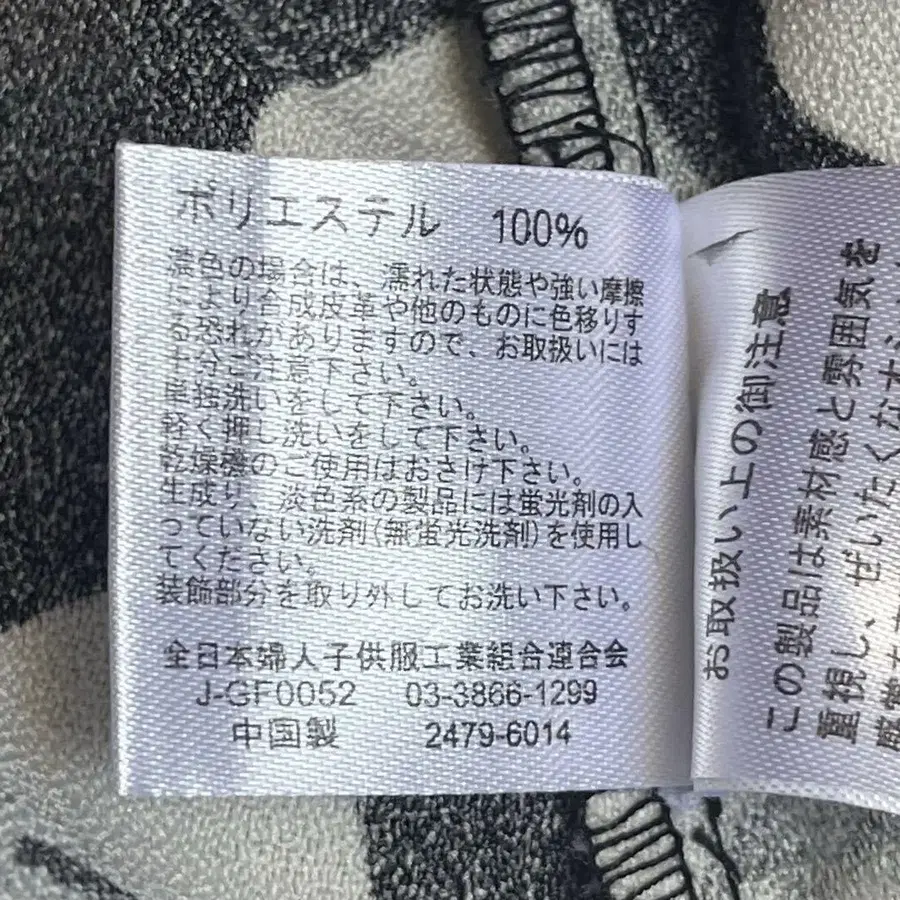 ポリエステル 100%
濃色の場合は、濡れた状態や強い摩擦
により合成皮革や他のものに色移りす
る恐れがありますので、お取扱いには
十分ご注意下さい。
単独洗いをして下さい。
軽く押し洗いをして下さい。
乾燥機のご使用はおさけ下さい。
生成り、淡色系の製品には蛍光剤の入
っていない洗剤(無蛍光洗剤)を使用し
てください。
装飾部分を取り外してお洗い下さい。
全日本婦人子供服工業組合連合会
J-GF0052 03-3866-1299
中国製 2479-6014
お取扱い上の御注意
この製品は素材感と雰囲気を
重視し、ぜいたくな